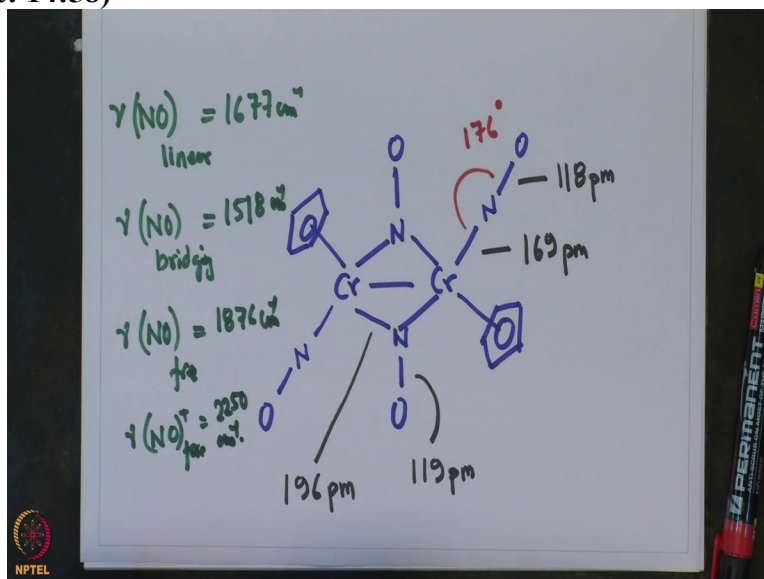 ν(NO) = 1677 cm⁻¹
linear
ν(NO) = 1518 cm⁻¹
bridging
ν(NO) = 1876 cm⁻¹
free
ν(NO)⁺ = 2250
free cm⁻¹.
O
N
Cr
Cr
N
O
176°
O
N
118 pm
169 pm
N
O
196 pm
119 pm
PERMANENT
NPTEL